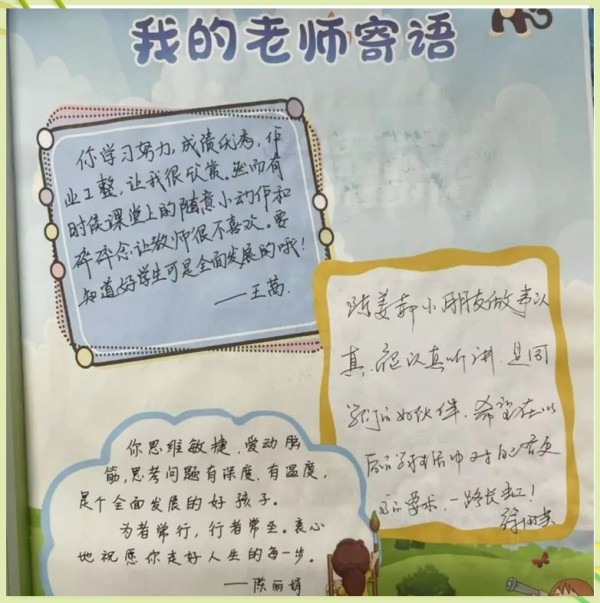 我的老师寄语
你学习努力,成绩优秀,作
业工整,让我很欣赏。然而有
时候课堂上的随意小动作和
碎碎念让教师很不喜欢。要
知道好学生可是全面发展的哦!
——王莴.
小朋友做事认
真,能认真听讲,是同
学们的好伙伴,希望在以
后的学习生活中对自己有更
高的要求,一路长虹!
你思维敏捷,爱动脑
筋,思考问题有深度、有温度,
是个全面发展的好孩子。
为者常行,行者常至。衷心
地祝愿你走好人生的每一步。
——陈丽娟